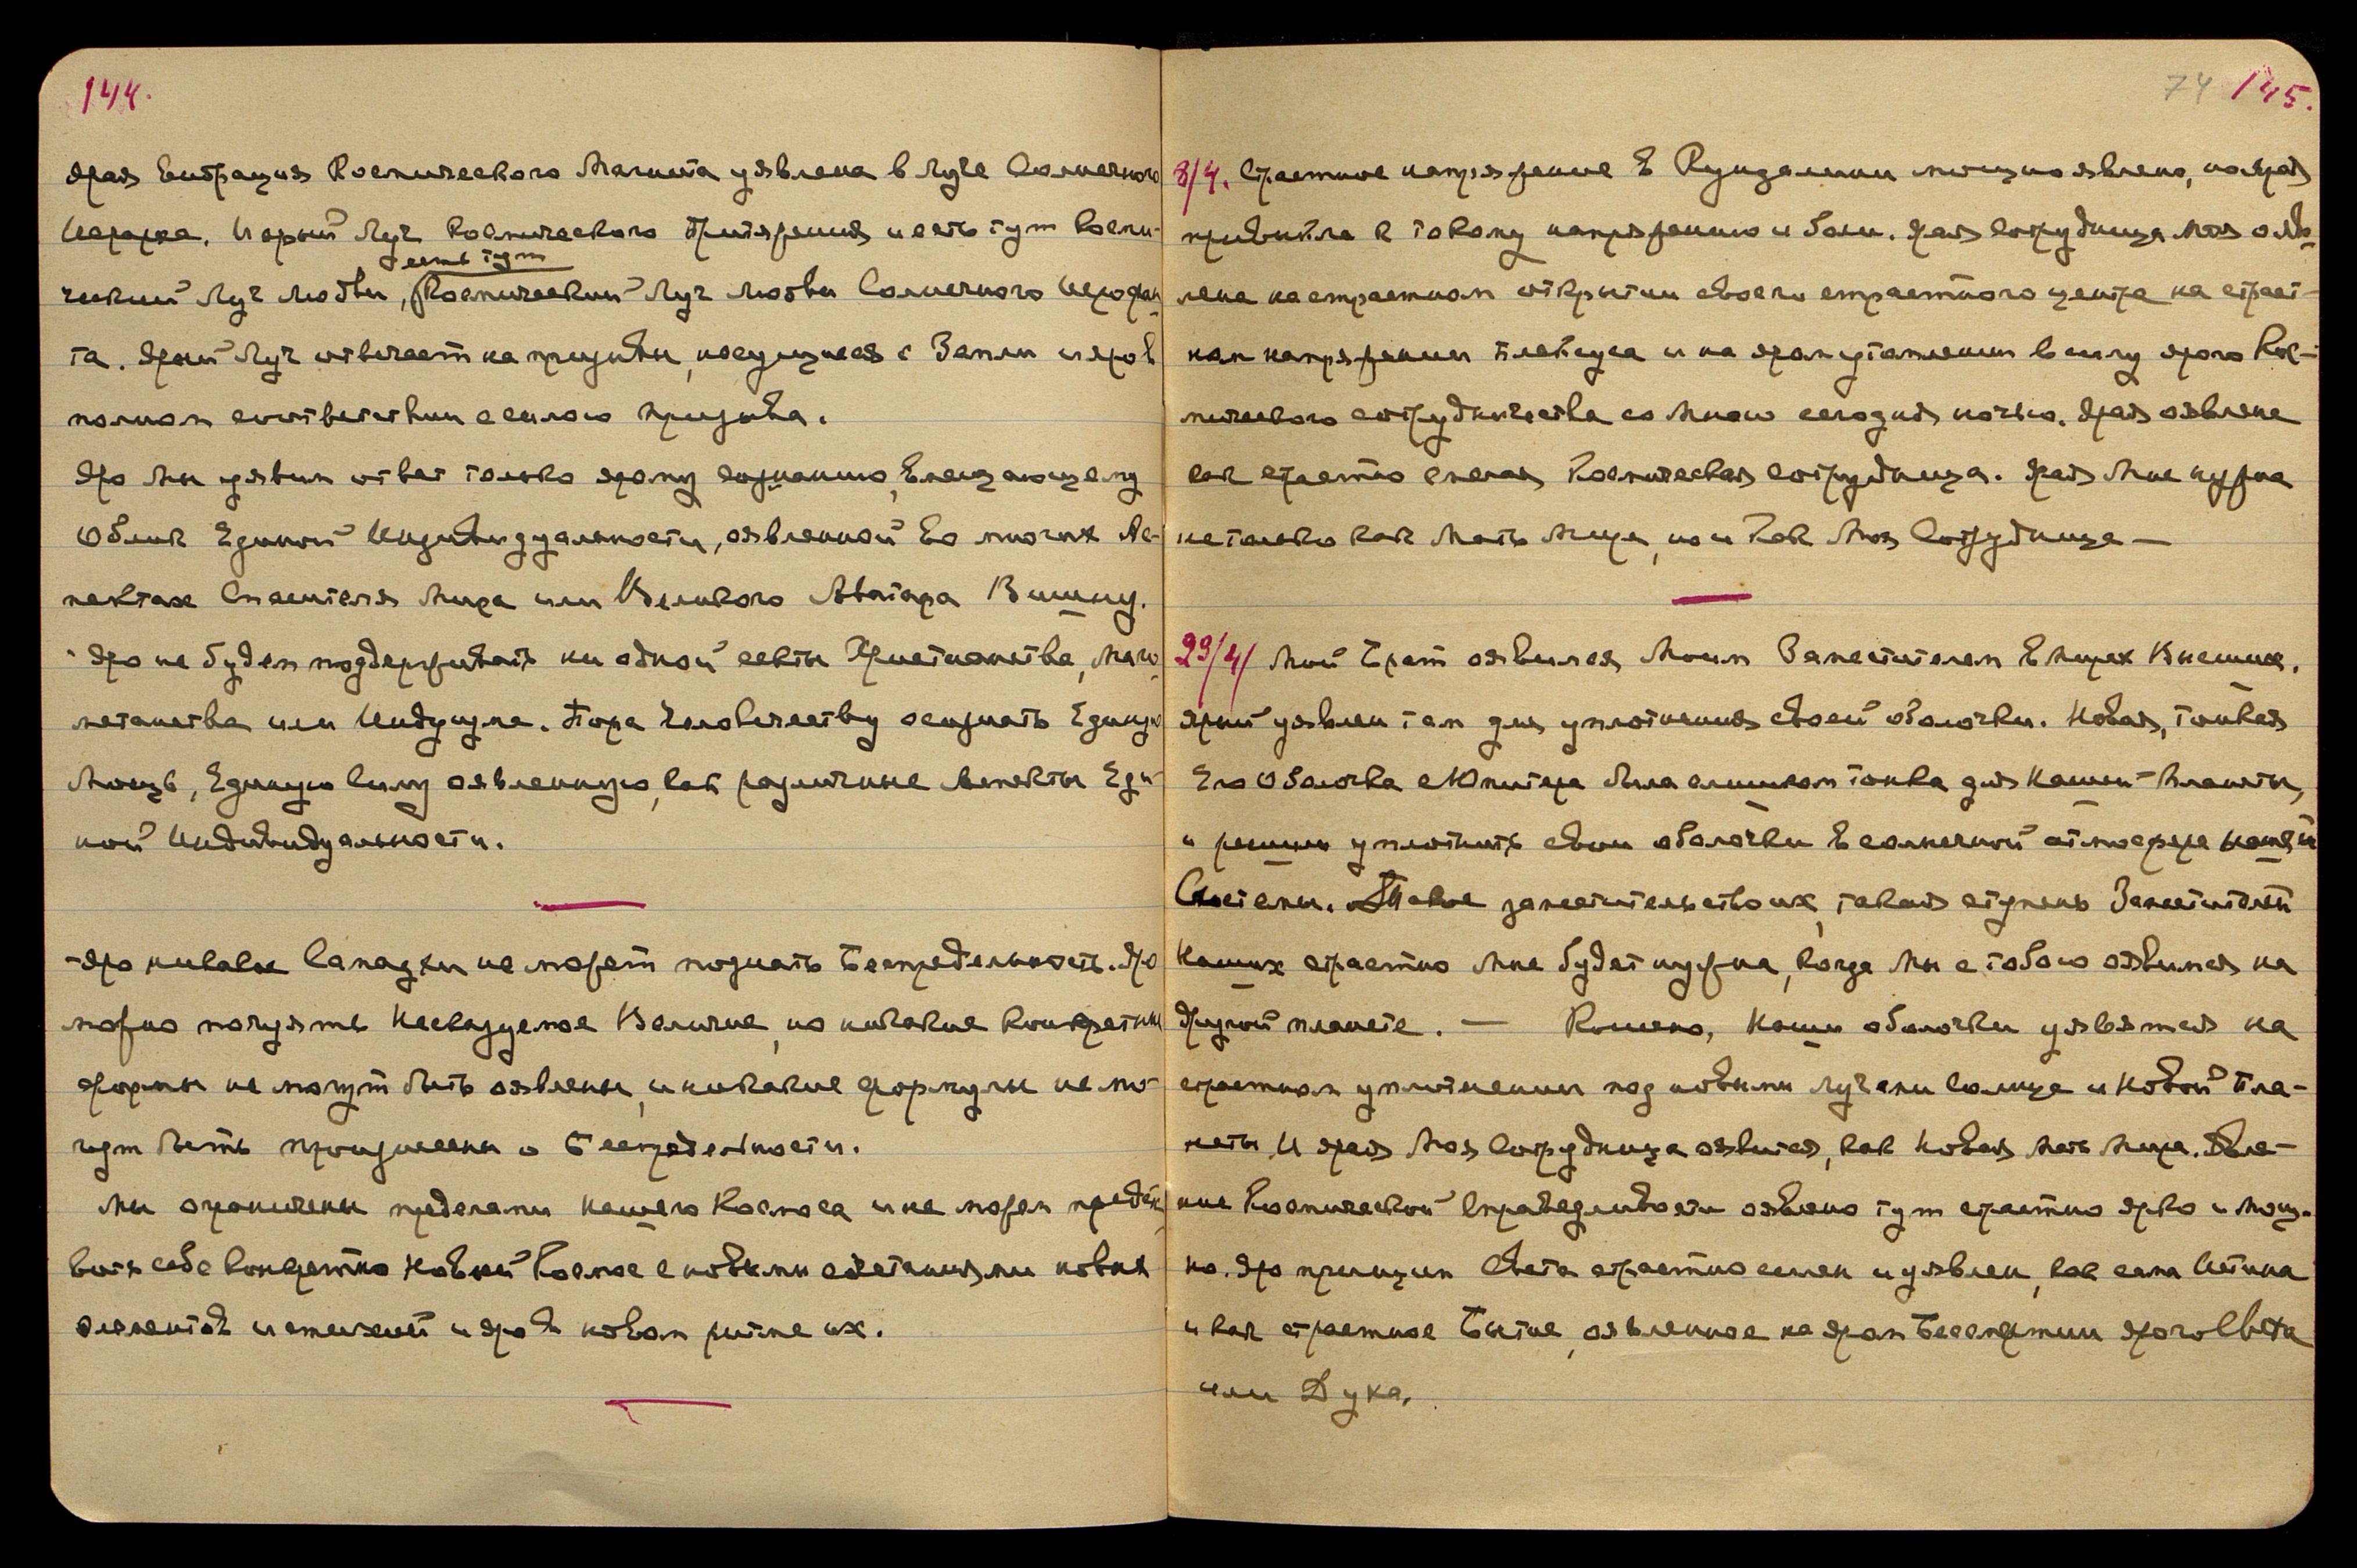 144.
Ярая вибрация Космического Магнита уявлена в Луче Солнечного
Иерарха. И ярый Луч Космического Притяжения и есть тут Косми-
есть тут
ческий Луч Любви, Космический Луч Любви Солнечного Иерофан-
та. Ярый Луч отвечает на призывы, несущиеся с Земли и яро в
полном соответствии с силою призыва.
Яро Мы уявим ответ только ярому сознанию, вмещающему
Облик Единой Индивидуальности, оявленной во многих Ас-
пектах Спасителя Мира или Великого Аватара Вишну.
Яро не будем поддерживать ни одной секты Христианства, Маго-
метанства или Индуизма. Пора человечеству осознать Единую
Мощь, Единую Силу оявленную, как различные Аспекты Еди-
ной Индивидуальности.
Яро никакие Самадхи не может познать Беспредельность. Яро
можно почуять Несказуемое Величие, но никакие конкретные
формы не могут быть оявлены, и никакие формулы не мо-
гут быть произнесены о Беспредельности.
Мы ограничены пределами нашего Космоса и не можем предста-
вить себе конкретно Новый Космос с новыми сочетаниями новых
элементов и стихий и яро в новом ритме их.
74 145.
8/4. Страстное напряжение в Кундалини мощно явлено, но ярая
привыкла к такому напряжению и боли. Ярая сотрудница Моя ояв-
лена на страстном открытии своего страстного центра на страст-
ном напряжении Плексуса и на ярам утомлении в силу ярого Кос-
мического сотрудничества со Мною сегодня ночью. Ярая оявлена
как страстно смелая Космическая сотрудница. Ярая Мне нужна
не только как Мать Мира, но и как Моя Сотрудница —
29/4/ Мой Брат оявился Моим Заместителем в Мирах Высших.
Ярый уявлен там для уплотнения своей оболочки. Новая, тонкая
Его Оболочка с Юпитера была слишком тонка для Нашей Планеты,
и решили уплотнить свои оболочки в солнечной атмосфере нашей
Системы. Такое заместительство их, такая ступень Заместителей
Наших страстно Мне будет нужна, когда Мы с тобою оявимся на
другой планете. — Конечно, Наши оболочки уявятся на
страстном уплотнении под новыми лучами Солнца и Новой Пла-
неты. И ярая Моя Сотрудница оявится, как Новая Мать Мира. Явле-
ние Космической Справедливости оявлено тут страстно ярко и мощ-
но. Яро принцип Света страстно силен и уявлен, как сама Истина
и как страстное Бытие, оявленное на яром Бессмертии ярого Света
или Духа.